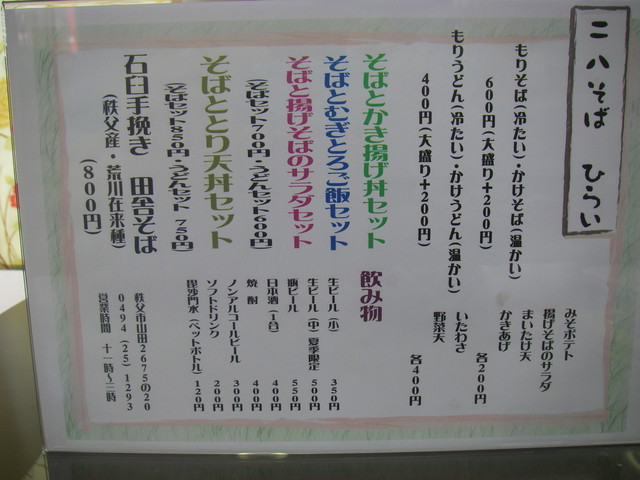 二八そば ひらい
もりそば(冷たい)・かけそば(温かい)
600円(大盛り+200円)
もりうどん(冷たい)・かけうどん(温かい)
400円(大盛り+200円)
みそポテト
揚げそばのサラダ
まいたけ天
かきあげ
各200円
いたわさ
野菜天
各400円
そばとかき揚げ丼セット
そばとむぎとろご飯セット
そばと揚げそばのサラダセット
(そばセット700円・うどんセット600円)
そばととり天丼セット
(そばセット850円・うどんセット 750円)
石臼手挽き 田舎そば
(秩父産・荒川在来種)
(800円)
飲み物
生ビール(小) 350円
生ビール(中)夏季限定 500円
瓶ビール 550円
日本酒(1合) 400円
焼酎 400円
ノンアルコールビール 300円
ソフトドリンク 200円
毘沙門水(ペットボトル) 120円
秩父市山田2675の20
0494(25)1293
営業時間 十一時~三時